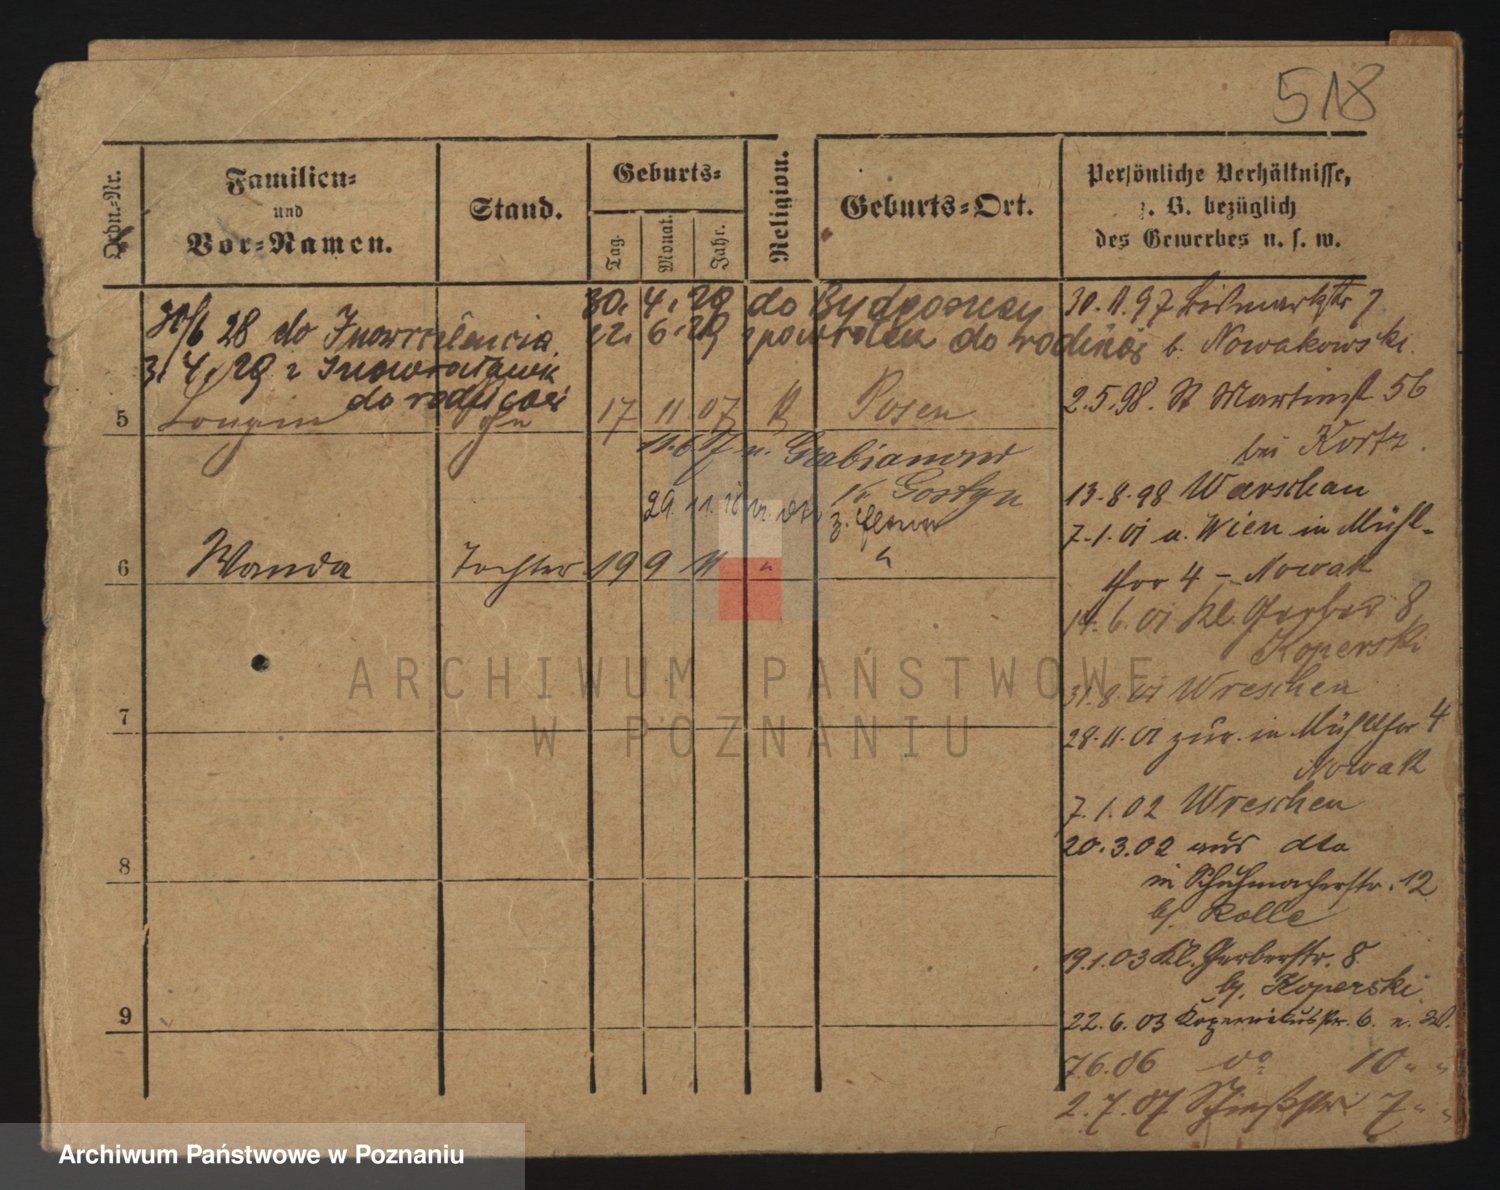 518
Ordn.-Nr.
Familien-
und
Vor-Namen.
Stand.
Geburts-
Tag.
Monat.
Jahr.
Religion.
Geburts-Ort.
Persönliche Verhältnisse,
z. B. bezüglich
des Gewerbes u. s. w.
30. 4. 29 do Bydgoszczy
30/6 28 do Inowrocławia
22. 6. 29 z powrotem do rodziców
3. 4. 29 z Inowrocławia
do rodziców
5 Longin Sohn 17 11 07 k Posen
11. 6 17 n. Grabianowo
Kr. Gostyn
29. 11.
z. Eltern
6 Wanda Tochter 19 9 11 " "
7
8
9
30. 11. 97 Bismarckstr 7
b. Nowakowski.
2. 5. 98. St Martinst 56
bei Kortz.
13. 8. 98 Warschau
7. 1. 01 a. Wien in Mühl-
thor 4 - Nowak
14. 6. 01 Kl. Gerber 8
Koperski
31. 8. 01 Wreschen
28. 11. 01 zur. in Mühlthor 4
Nowak
7. 1. 02 Wreschen
20. 3. 02 aus dto
in Schuhmacherstr. 12
bj. Rolle
19. 1. 03 Kl. Gerberstr. 8.
bj. Koperski.
22. 6. 03 Kopernikusstr. 6. e. W.
7 6. 06 do 10 " "
2. 7. 07 Schießstr. 7 " "
ARCHIWUM PAŃSTWOWE
W POZNANIU
Archiwum Państwowe w Poznaniu